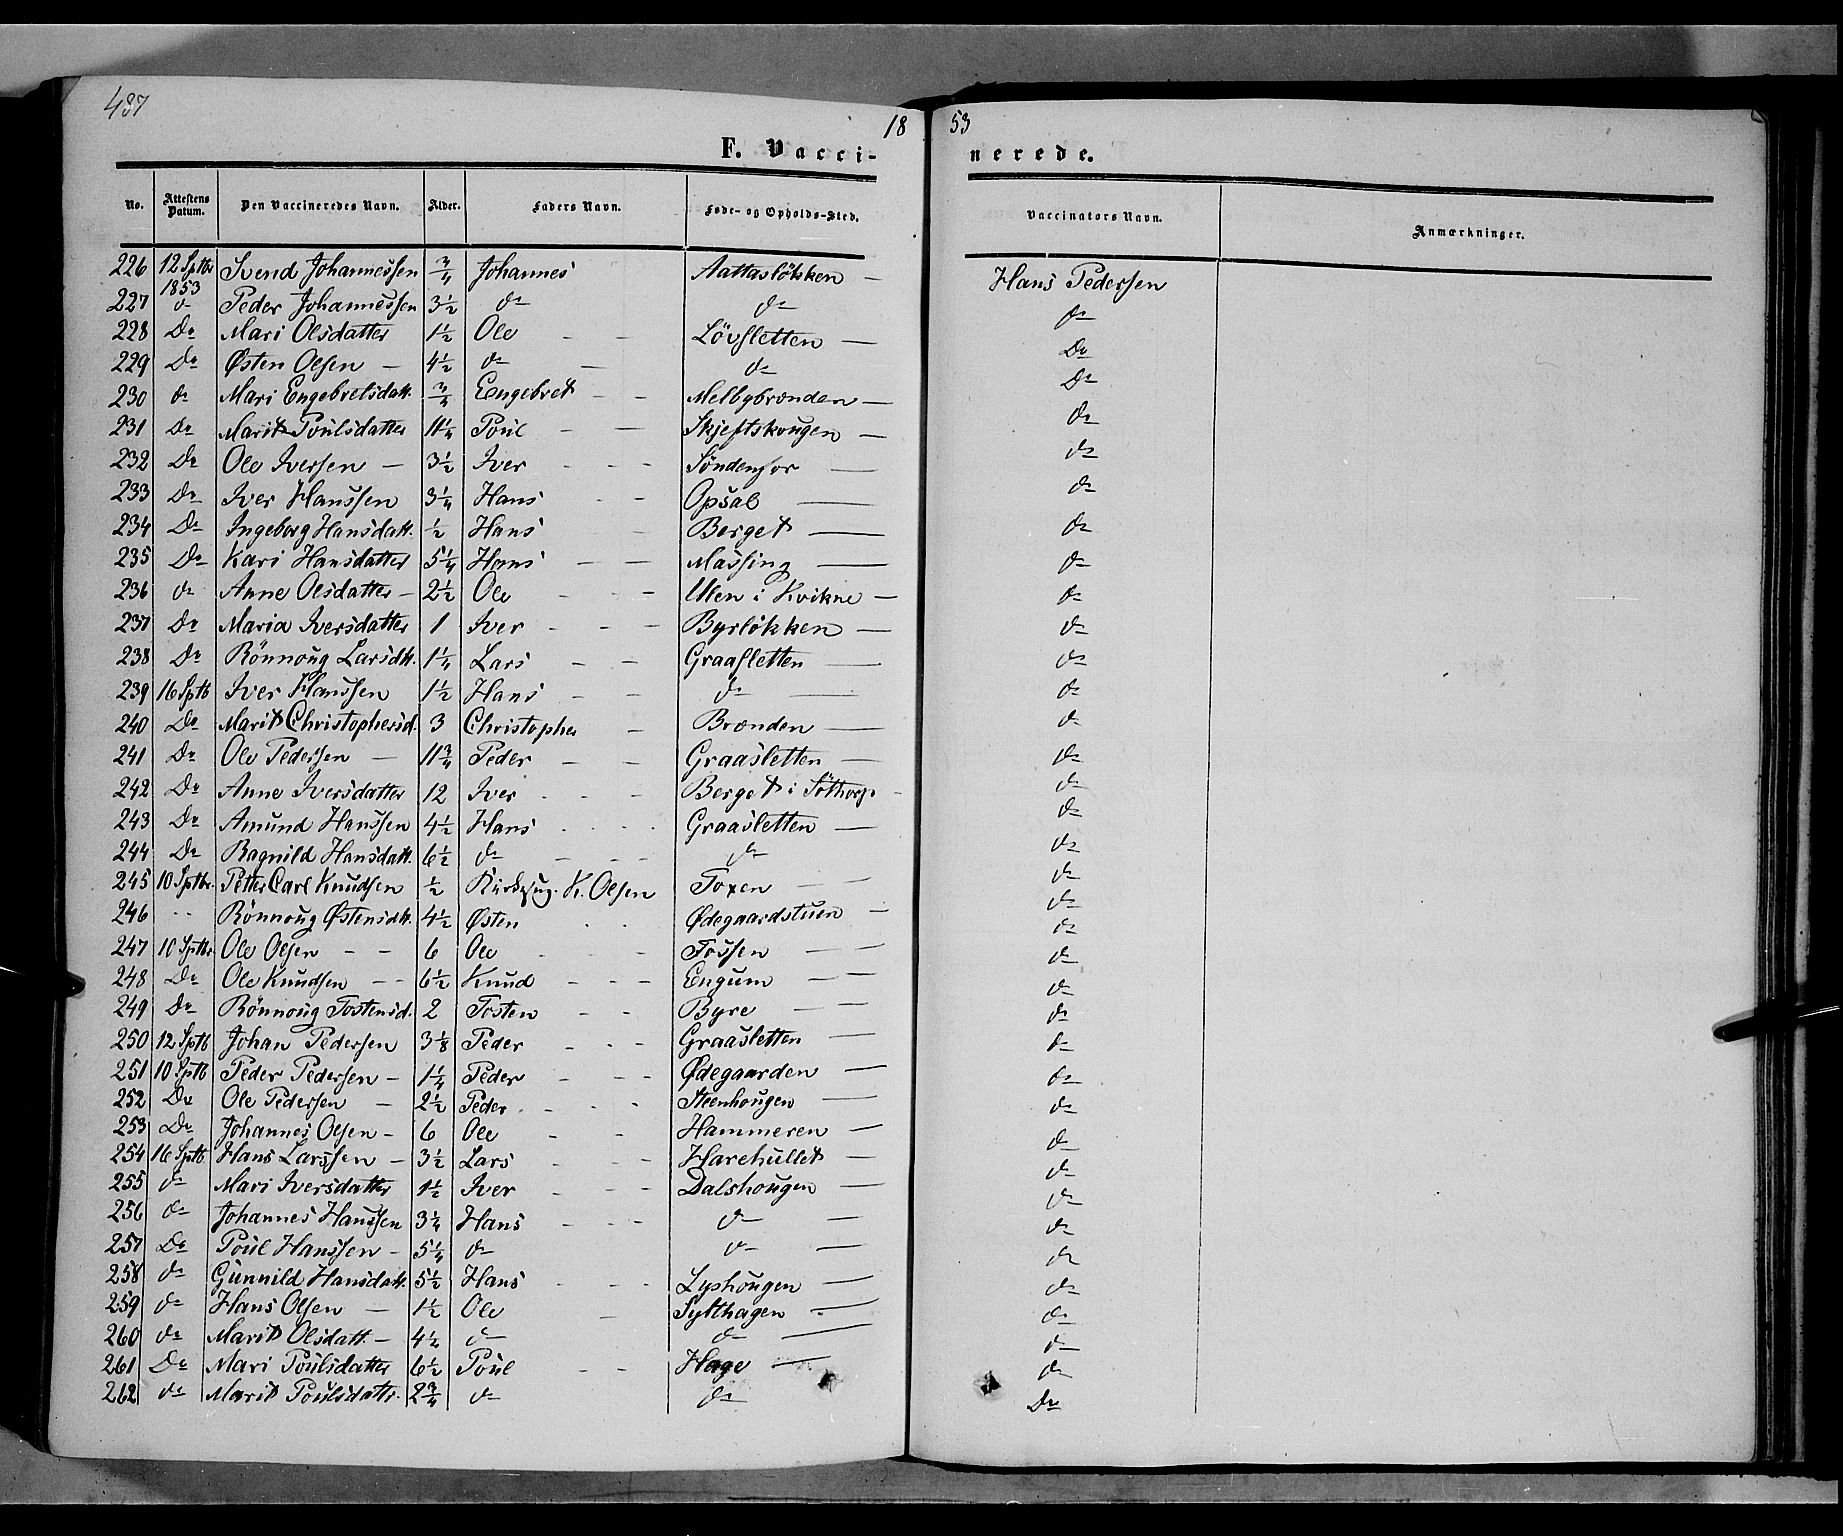 487
18 53
F. Vacci- nerede.
No. Attestens Datum. Den Vaccineredes Navn. Alder. Faders Navn. Føde- og Opholds-Sted. Vaccinators Navn. Anmærkninger.
226 12 Sptbr 1853 Svend Johannessen 3/4 Johannes Aattasløkken — Hans Pedersen
227 do Peder Johannessen 3 1/2 do do do
228 Do Mari Olsdatter 1 1/2 Ole - - Lövsletten — Do
229 Do Østen Olsen — 4 1/2 do — do Do
230 do Mari Engebretsdatt. 3/4 Engebret - - Melbybrænden — do
231 Do Marit Poulsdatter 11 1/4 Poul - — Skjeftskougen — do
232 Do Ole Iversen — 3 1/2 Iver - - - Søndenfor — do
233 Do Iver Hanssen 3 1/4 Hans - - Opsal — do
234 Do Ingeborg Hansdatt. 1/2 Hans - Berget — do
235 Do Kari Hansdatter 5 1/4 Hans - — Massing — do
236 do Anne Olsdatter - 2 1/2 Ole - - - Ulen i Kvikne — do
237 Do Maria Iversdatter 1 Iver - - - Byrløkken — do
238 Do Rönnoug Larsdtt. 1 1/4 Lars - - Graasletten — do
239 16 Sptb Iver Hanssen 1 1/2 Hans - - do — do
240 Do Marit Christophersd. 3 Christopher - Brænden — do
241 Do Ole Pedersen — 11 3/4 Peder - - Graasletten — do
242 Do Anne Iversdatter 12 Iver - - - Berget i Söthorp - do
243 Do Amund Hanssen 4 1/2 Hans - - - Graasletten — do
244 Do Ragnild Hansdatt. 6 1/2 do - - - do do
245 10 Sptbr. Petter Carl Knudsen 1/2 Kirkesng. K. Olsen Toxen — — do
246 - - Rönnoug Østensdtt. 4 1/2 Østen - - Ødegaardstuen — do
247 10 Sptbr Ole Olsen - - 6 Ole - - Fossen — — do
248 Do Ole Knudsen - - 6 1/2 Knud - - - Engum — — do
249 Do Rönnoug Tostensd. 2 Tosten - - Byre - — do
250 12 Sptb Johan Pedersen 3 1/8 Peder - - - Graasletten — do
251 10 Sptb Peder Pedersen - 1 1/4 Peder - - - Ødegaarden — do
252 Do Ole Pedersen — 2 1/2 Peder - - - Steenhougen — do
253 Do Johannes Olsen - 6 Ole - - Hammeren — do
254 16 Sptb Hans Larssen - 3 1/2 Lars - - - Harehullet — do
255 do Mari Iversdatter 1 1/2 Iver - - - Dalshougen — do
256 do Johannes Hanssen 3 1/4 Hans - - - do — do
257 Do Poul Hanssen - 5 1/4 do do — do
258 do Gunnild Hansdatt. 5 1/2 Hans - - - Lyshougen — do
259 do Hans Olsen — 1 1/2 Ole - Sylthagen — do
260 do Marit Olsdatt - 4 1/2 do do — do
261 Do Mari Poulsdatter 6 1/2 Poul - - Hage — do
262 do Marit Poulsdatr. 2 3/4 do do Do